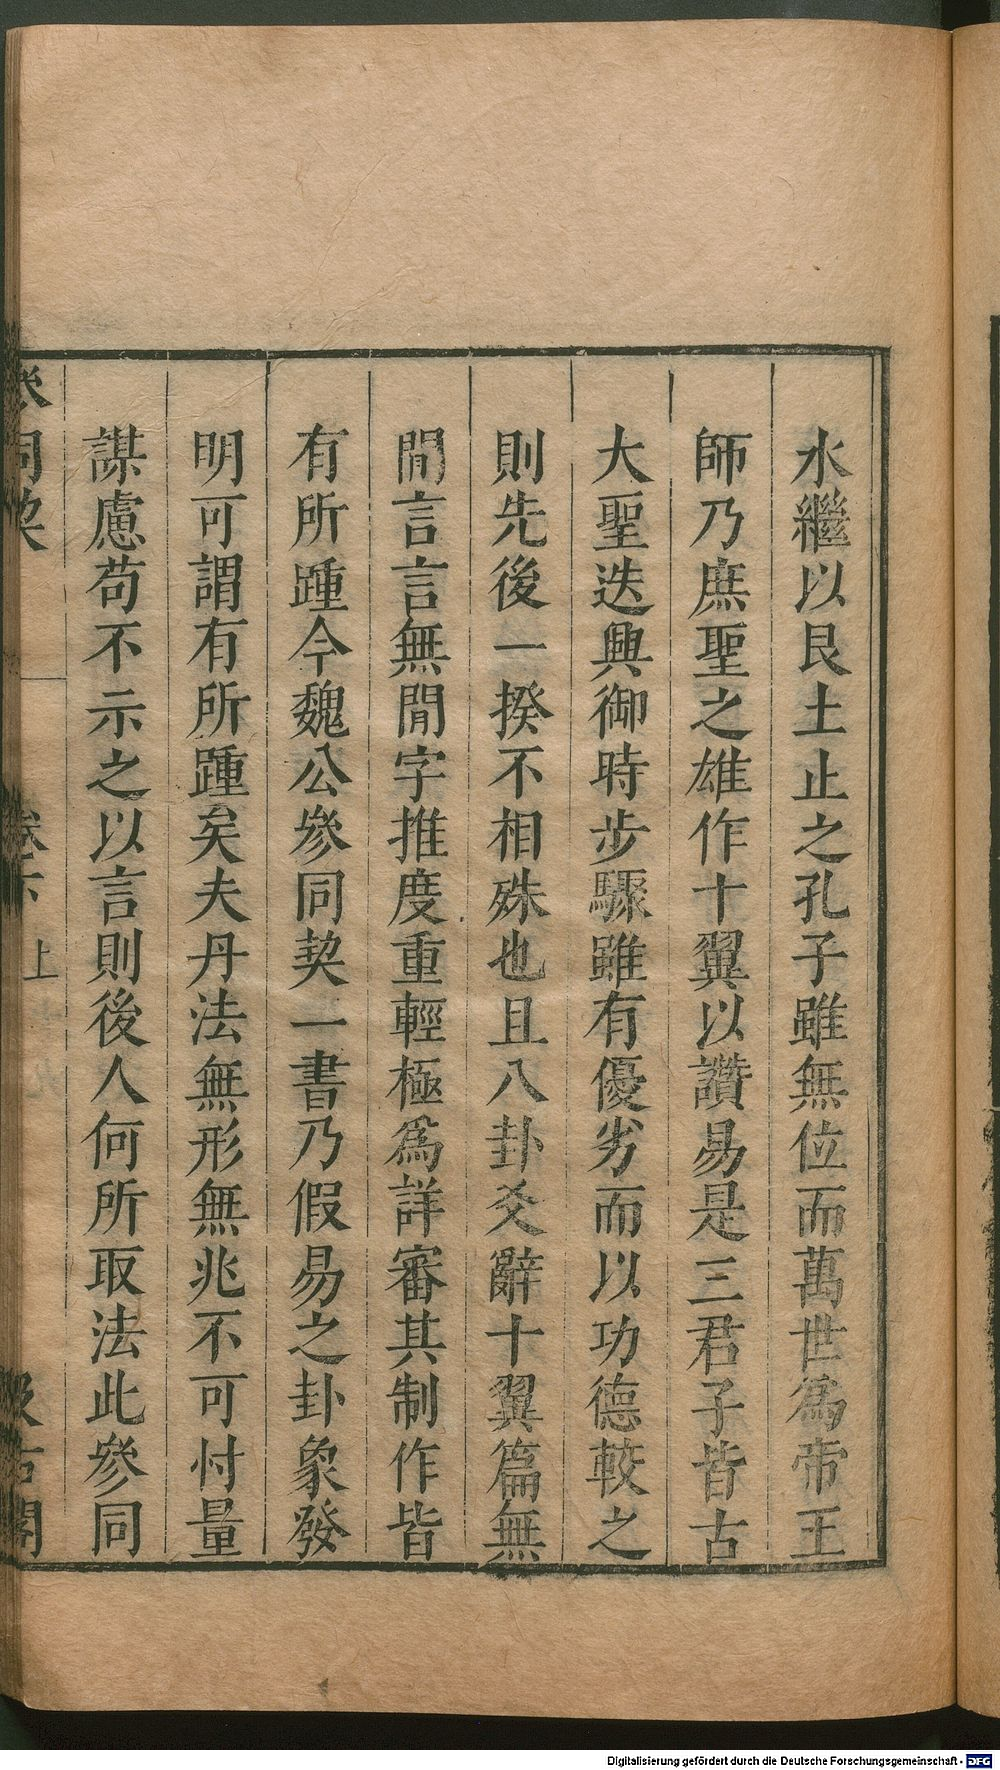 水繼以艮土止之孔子雖無位而萬世爲帝王
師乃庶聖之雄作十翼以讚易是三君子皆古
大聖迭興御時步驟雖有優劣而以功德較之
則先後一揆不相殊也且八卦爻辭十翼篇無
閒言言無閒字推度重輕極爲詳審其制作皆
有所踵今魏公參同契一書乃假易之卦象發
明可謂有所踵矣夫丹法無形無兆不可忖量
謀慮苟不示之以言則後人何所取法此參同
參同契 卷下 上 汲古閣
Digitalisierung gefördert durch die Deutsche Forschungsgemeinschaft - DFG